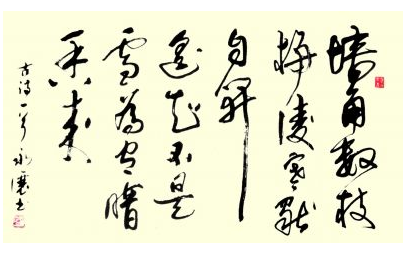 墙角数枝
梅凌寒獨
自開
遥知不是
雪為有暗
香来
古诗一首 永